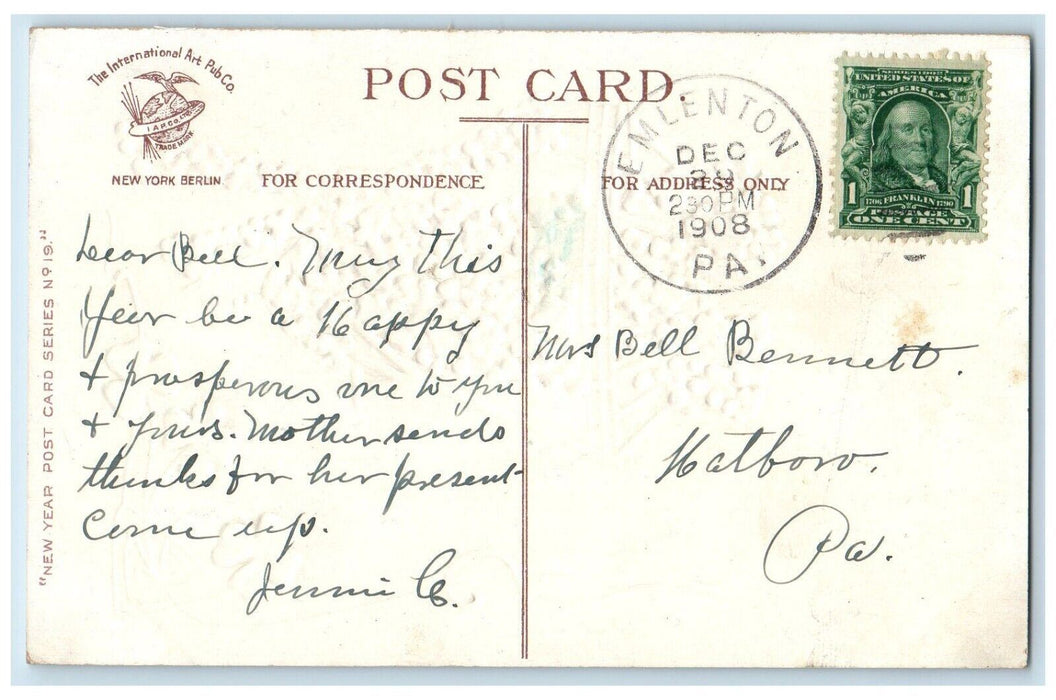 The International Art Pub Co.
I.A.P.Co.
TRADE MARK
NEW YORK BERLIN
POST CARD.
FOR CORRESPONDENCE
FOR ADDRESS ONLY
"NEW YEAR POST CARD SERIES Nº 19."
EMLENTON
DEC
230PM
1908
PA.
SERIES 1902
UNITED STATES OF
AMERICA
1706 FRANKLIN 1790
1 POSTAGE 1
ONE CENT
Dear Bell. May this
Year be a Happy
& prosperous one to you
& yours. Mother sends
thanks for her present
Come up.
Jennie C.
Mrs Bell Bennett.
Hatboro.
Pa.